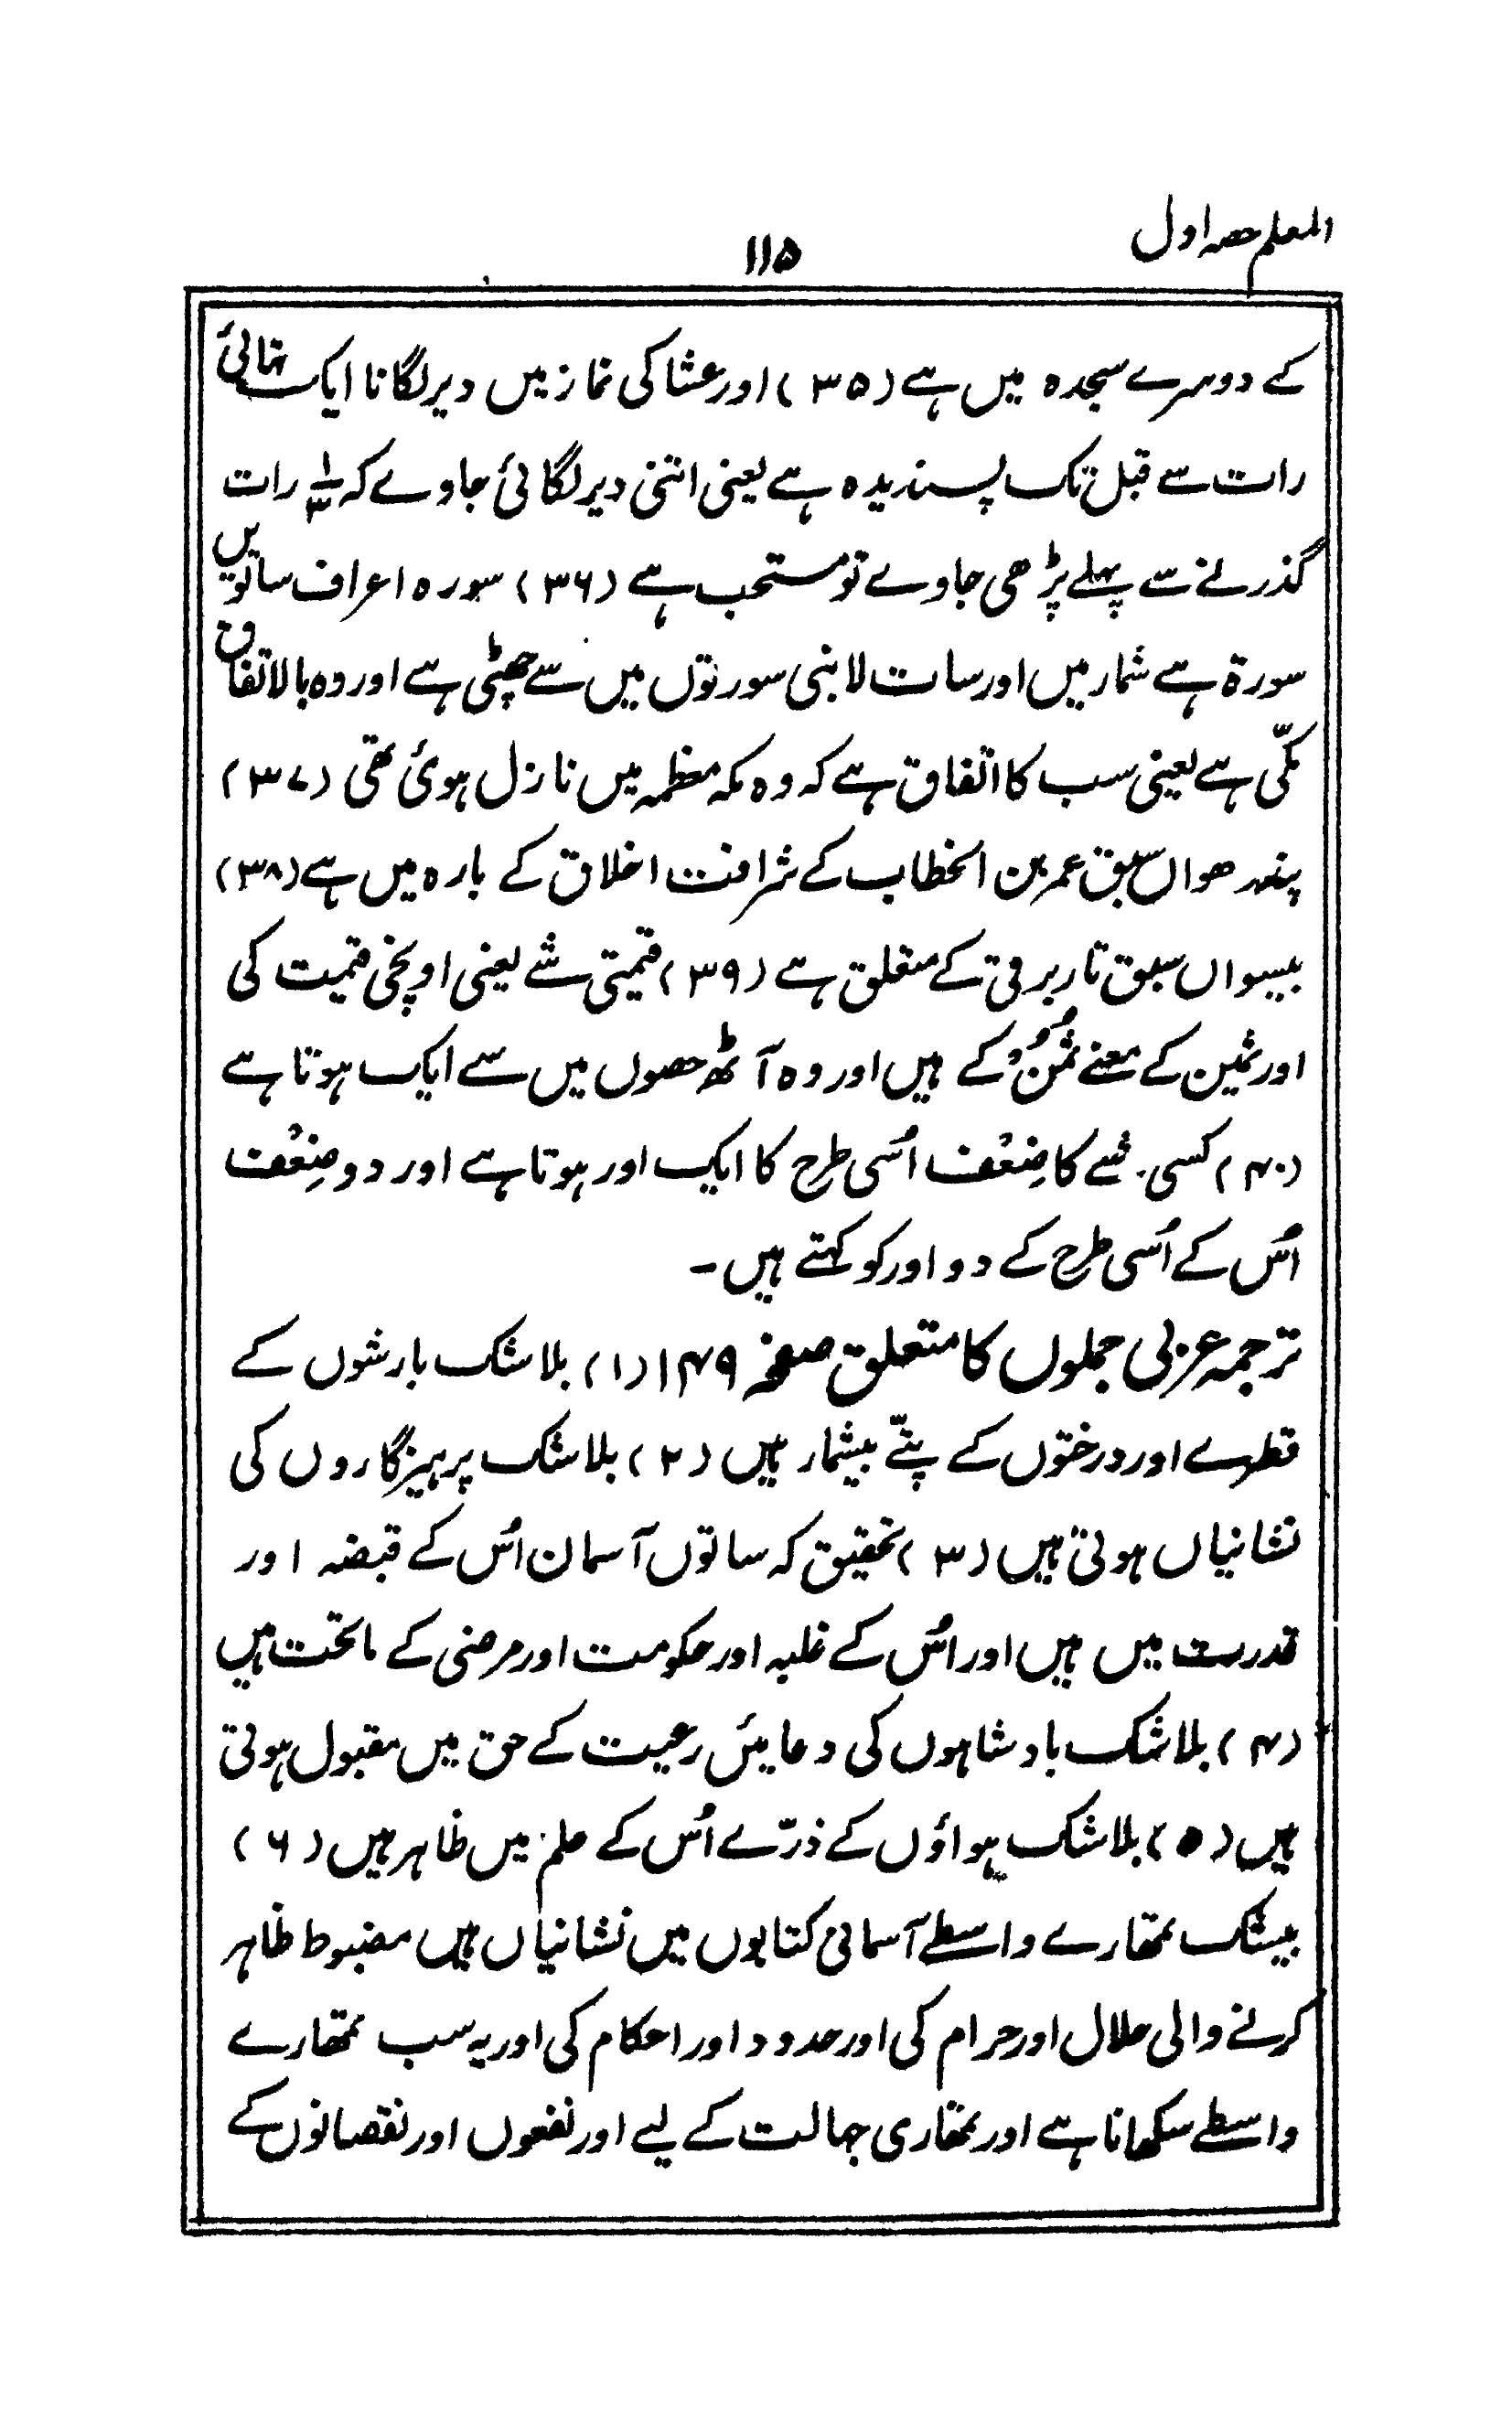 المعلم حصہ اول
۱۱۵
کے دوسرے سجدہ میں ہے (۳۵) اور عشا کی نماز میں دیر لگانا ایک تہائی
رات سے قبل تک پسندیدہ ہے یعنی اتنی دیر لگائی جاوے کہ ۱/۳ رات
گذرنے سے پہلے پڑھی جاوے تو مستحب ہے (۳۶) سورہ اعراف ساتویں
سورۃ ہے شمار میں اور سات لانبی سورتوں میں سے چھٹی ہے اور وہ بالاتفاق
مکّی ہے یعنی سب کا اتفاق ہے کہ وہ مکہ معظمہ میں نازل ہوئی تھی (۳۷)
پندرھواں سبق عمر بن الخطاب کے شرافت اخلاق کے بارہ میں ہے (۳۸)
بیسواں سبق تار برقی کے متعلق ہے (۳۹) قیمتی شے یعنی اونچی قیمت کی
اور ثمین کے معنے ثُمُنْ کے ہیں اور وہ آٹھ حصوں میں سے ایک ہوتا ہے
(۴۰) کسی شے کا ضِعْف اُسی طرح کا ایک اور ہوتا ہے اور دو ضِعْف
اُس کے اُسی طرح کے دو اور کو کہتے ہیں ۔
ترجمہ عربی جملوں کا متعلق صفحہ ۱۴۹ (۱) بلاشک بارشوں کے
قطرے اور درختوں کے پتّے بیشمار ہیں (۲) بلاشک پرہیزگاروں کی
نشانیاں ہوتی ہیں (۳) تحقیق کہ ساتوں آسمان اُس کے قبضہ اور
قدرت میں ہیں اور اُس کے غلبہ اور حکومت اور مرضی کے ماتحت ہیں
(۴) بلاشک بادشاہوں کی دعایئں رعیت کے حق میں مقبول ہوتی
ہیں (۵) بلاشک ہواؤں کے ذرّے اُس کے علم میں ظاہر ہیں (۶)
بیشک تمھارے واسطے آسمانی کتابوں میں نشانیاں ہیں مضبوط ظاہر
کرنے والی حلال اور حرام کی اور حدود اور احکام کی اور یہ سب تمھارے
واسطے سکھانا ہے اور تمھاری جہالت کے لیے اور نفعوں اور نقصانوں کے